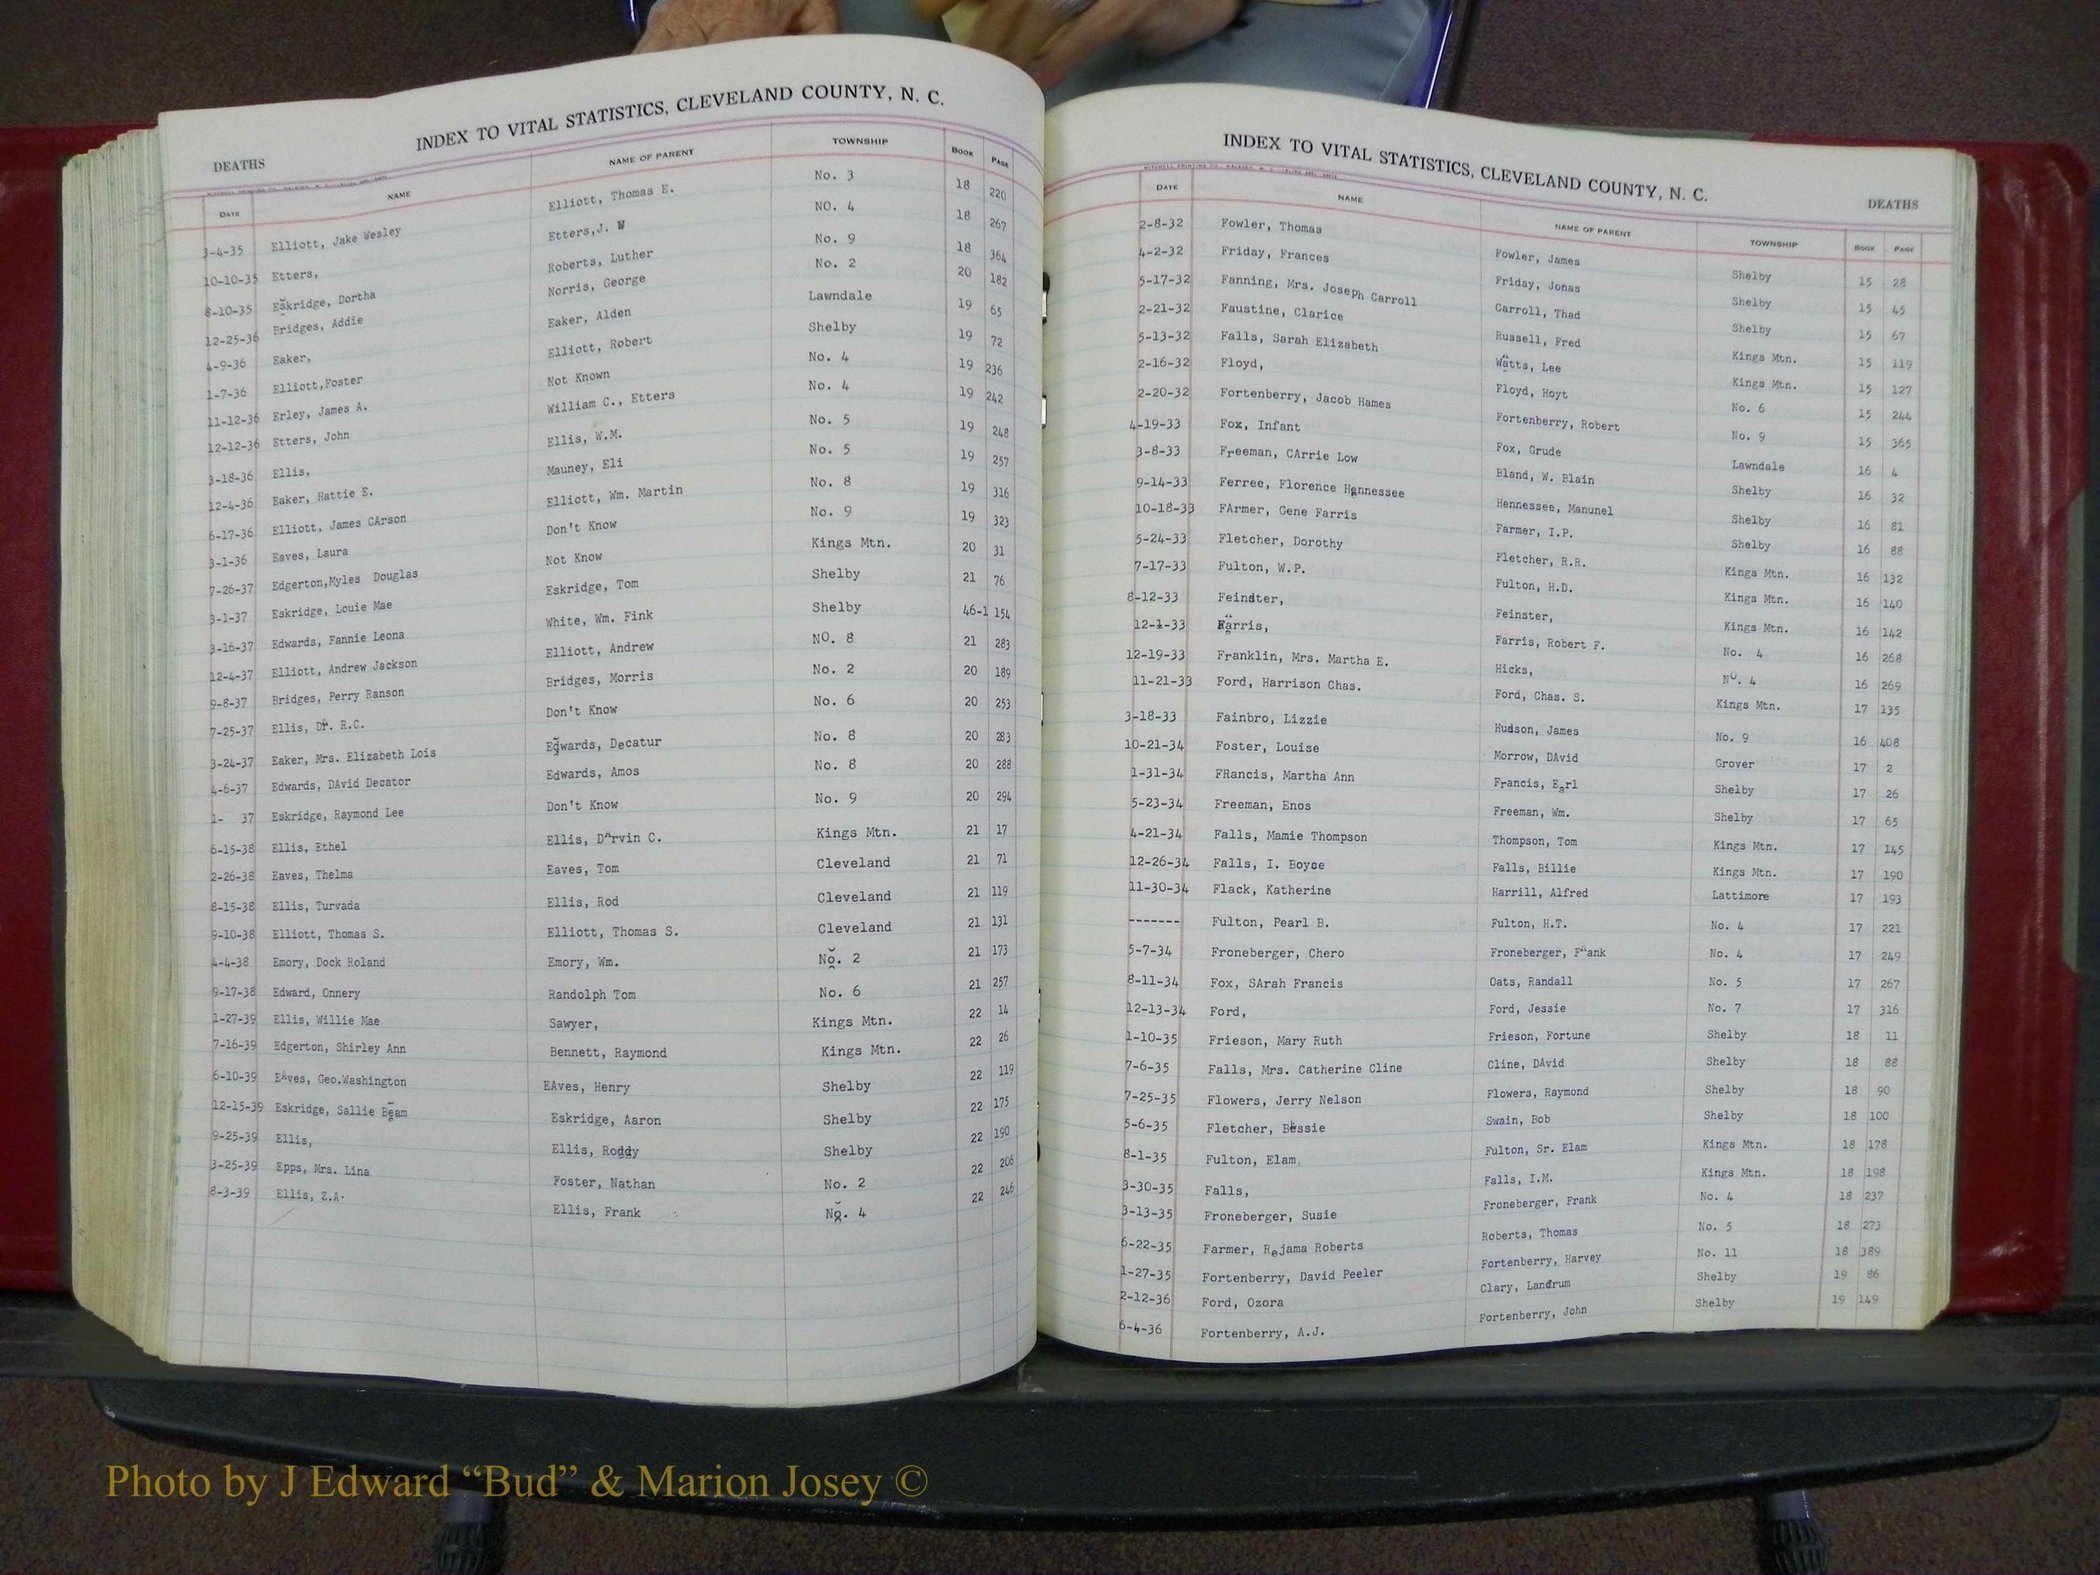 INDEX TO VITAL STATISTICS, CLEVELAND COUNTY, N. C.
DEATHS
DATE NAME NAME OF PARENT TOWNSHIP BOOK PAGE
3-4-35 Elliott, Jake Wesley Elliott, Thomas E. No. 3 18 220
10-10-35 Etters, Etters,J. W NO. 4 18 267
8-10-35 Eskridge, Dortha Roberts, Luther No. 9 18 364
12-25-36 Bridges, Addie Norris, George No. 2 20 182
4-9-36 Eaker, Eaker, Alden Lawndale 19 65
1-7-36 Elliott,Foster Elliott, Robert Shelby 19 72
11-12-36 Erley, James A. Not Known No. 4 19 236
12-12-36 Etters, John William C., Etters No. 4 19 242
3-18-36 Ellis, Ellis, W.M. No. 5 19 248
12-4-36 Eaker, Hattie E. Mauney, Eli No. 5 19 257
6-17-36 Elliott, James CArson Elliott, Wm. Martin No. 8 19 316
3-1-36 Eaves, Laura Don't Know No. 9 19 323
7-26-37 Edgerton,Myles Douglas Not Know Kings Mtn. 20 31
3-1-37 Eskridge, Louie Mae Eskridge, Tom Shelby 21 76
3-16-37 Edwards, Fannie Leona White, Wm. Fink Shelby 46-1 154
12-4-37 Elliott, Andrew Jackson Elliott, Andrew NO. 8 21 283
9-8-37 Bridges, Perry Ranson Bridges, Morris No. 2 20 189
7-25-37 Ellis, DR. R.C. Don't Know No. 6 20 253
3-24-37 Eaker, Mrs. Elizabeth Lois Edwards, Decatur No. 8 20 283
4-6-37 Edwards, DAvid Decator Edwards, Amos No. 8 20 288
1- 37 Eskridge, Raymond Lee Don't Know No. 9 20 294
6-15-38 Ellis, Ethel Ellis, DArvin C. Kings Mtn. 21 17
2-26-38 Eaves, Thelma Eaves, Tom Cleveland 21 71
8-15-38 Ellis, Turvada Ellis, Rod Cleveland 21 119
9-10-38 Elliott, Thomas S. Elliott, Thomas S. Cleveland 21 131
4-4-38 Emory, Dock Roland Emory, Wm. No. 2 21 173
9-17-38 Edward, Onnery Randolph Tom No. 6 21 257
1-27-39 Ellis, Willie Mae Sawyer, Kings Mtn. 22 14
7-16-39 Edgerton, Shirley Ann Bennett, Raymond Kings Mtn. 22 26
6-10-39 EAves, Geo.Washington EAves, Henry Shelby 22 119
12-15-39 Eskridge, Sallie Beam Eskridge, Aaron Shelby 22 175
9-25-39 Ellis, Ellis, Roddy Shelby 22 190
3-25-39 Epps, Mrs. Lina Foster, Nathan No. 2 22 206
8-3-39 Ellis, Z.A. Ellis, Frank No. 4 22 246
INDEX TO VITAL STATISTICS, CLEVELAND COUNTY, N. C.
DEATHS
DATE NAME NAME OF PARENT TOWNSHIP BOOK PAGE
2-8-32 Fowler, Thomas Fowler, James Shelby 15 28
4-2-32 Friday, Frances Friday, Jonas Shelby 15 45
5-17-32 Fanning, Mrs. Joseph Carroll Carroll, Thad Shelby 15 67
2-21-32 Faustine, Clarice Russell, Fred Kings Mtn. 15 119
5-13-32 Falls, Sarah Elizabeth Watts, Lee Kings Mtn. 15 127
2-16-32 Floyd, Floyd, Hoyt No. 6 15 244
2-20-32 Fortenberry, Jacob Hames Fortenberry, Robert No. 9 15 365
4-19-33 Fox, Infant Fox, Grude Lawndale 16 4
3-8-33 Freeman, CArrie Low Bland, W. Blain Shelby 16 32
9-14-33 Ferree, Florence Hennessee Hennessee, Manunel Shelby 16 81
10-18-33 FArmer, Gene Farris Farmer, I.P. Shelby 16 88
5-24-33 Fletcher, Dorothy Fletcher, R.R. Kings Mtn. 16 132
7-17-33 Fulton, W.P. Fulton, H.D. Kings Mtn. 16 140
8-12-33 Feinster, Feinster, Kings Mtn. 16 142
12-1-33 Farris, Farris, Robert F. No. 4 16 268
12-19-33 Franklin, Mrs. Martha E. Hicks, NO. 4 16 269
11-21-33 Ford, Harrison Chas. Ford, Chas. S. Kings Mtn. 17 135
3-18-33 Fainbro, Lizzie Hudson, James No. 9 16 408
10-21-34 Foster, Louise Morrow, DAvid Grover 17 2
1-31-34 FRancis, Martha Ann Francis, Earl Shelby 17 26
5-23-34 Freeman, Enos Freeman, Wm. Shelby 17 65
4-21-34 Falls, Mamie Thompson Thompson, Tom Kings Mtn. 17 145
12-26-34 Falls, I. Boyce Falls, Billie Kings Mtn. 17 190
11-30-34 Flack, Katherine Harrill, Alfred Lattimore 17 193
------- Fulton, Pearl B. Fulton, H.T. No. 4 17 221
5-7-34 Froneberger, Chero Froneberger, FRank No. 4 17 249
8-11-34 Fox, SArah Francis Oats, Randall No. 5 17 267
12-13-34 Ford, Ford, Jessie No. 7 17 316
1-10-35 Frieson, Mary Ruth Frieson, Fortune Shelby 18 11
7-6-35 Falls, Mrs. Catherine Cline Cline, DAvid Shelby 18 88
7-25-35 Flowers, Jerry Nelson Flowers, Raymond Shelby 18 90
5-6-35 Fletcher, Bessie Swain, Bob Shelby 18 100
8-1-35 Fulton, Elam Fulton, Sr. Elam Kings Mtn. 18 178
3-30-35 Falls, Falls, I.M. Kings Mtn. 18 198
3-13-35 Froneberger, Susie Froneberger, Frank No. 4 18 237
6-22-35 Farmer, Rejama Roberts Roberts, Thomas No. 5 18 273
1-27-35 Fortenberry, David Peeler Fortenberry, Harvey No. 11 18 389
2-12-36 Ford, Ozora Clary, Landrum Shelby 19 86
6-4-36 Fortenberry, A.J. Fortenberry, John Shelby 19 149
Photo by J Edward “Bud” & Marion Josey ©